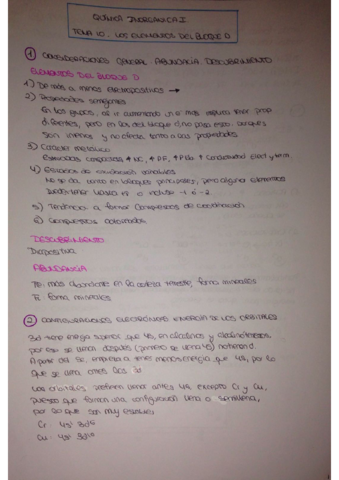 QUÍMICA INORGÁNICA I
TEMA 10. LOS ELEMENTOS DEL BLOQUE D
① CONSIDERACIONES GENERAL ABUNDANCIA DESCUBRIMIENTO
ELEMENTOS DEL BLOQUE D
1) De más a menos electropositivos →
2) Propiedades semejantes
En los grupos, al ir aumentando un e⁻ más tienen prop
diferentes, pero en los del bloque d, no pasa eso. aunque
son internos y no afecta tanto a las propiedades
3) Carácter metálico
Estructuras compactas ↑ NC, ↑ PF, ↑ Peb ↑ Conductividad elect y term.
4) Estados de oxidación variables
No se da como en bloques principales, pero algunos elementos
pueden tener hasta el o incluso -1 ó -2
5) Tendencia a formar compuestos de coordinación
6) Compuestos coloreados
DESCUBRIMIENTO
Diapositiva
ABUNDANCIA
Fe más abundante en la corteza terrestre, forma minerales
Ti forma minerales
② CONFIGURACIONES ELECTRÓNICAS ENERGÍA DE LOS ORBITALES
3d tiene energía superior que 4s, en alcalinos y alcalinotérreos
por eso se llena después (primero se llena 4s)
A partir del Sc, empieza a tener menos energía que 4s, por lo
que se llena antes
Los orbitales prefieren llenar antes 4s excepto Cr y Cu,
puesto que forman una configuración llena o semillena,
por lo que son muy estables
Cr: 4s¹ 3d⁵
Cu: 4s¹ 3d¹⁰